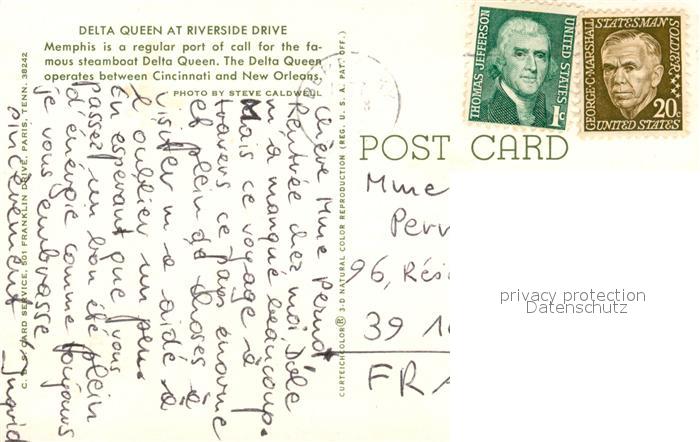 DELTA QUEEN AT RIVERSIDE DRIVE
Memphis is a regular port of call for the fa-
mous steamboat Delta Queen. The Delta Queen
operates between Cincinnati and New Orleans.
PHOTO BY STEVE CALDWELL
C. & S. CARD SERVICE, 501 FRANKLIN DRIVE, PARIS, TENN. 38242
Chère Mme Pernot
Rentrée chez moi, Dôle
m'a manqué beaucoup.
Mais ce voyage à
travers ce pays énorme
et plein de choses à
visiter m'a aidé à
l'oublier un peu.
En espérant que vous
passez un bon été plein
d'énergie comme toujours
je vous embrasse
sincèrement Ingrid
CURTEICHCOLOR® 3-D NATURAL COLOR REPRODUCTION (REG. U. S. A. PAT. OFF.)
THOMAS JEFFERSON
UNITED STATES
1c
GEORGE C. MARSHALL
STATESMAN
SOLDIER
20c
UNITED STATES
POST CARD
Mme
Per
96, Rési
39 10
FRA
privacy protection
Datenschutz